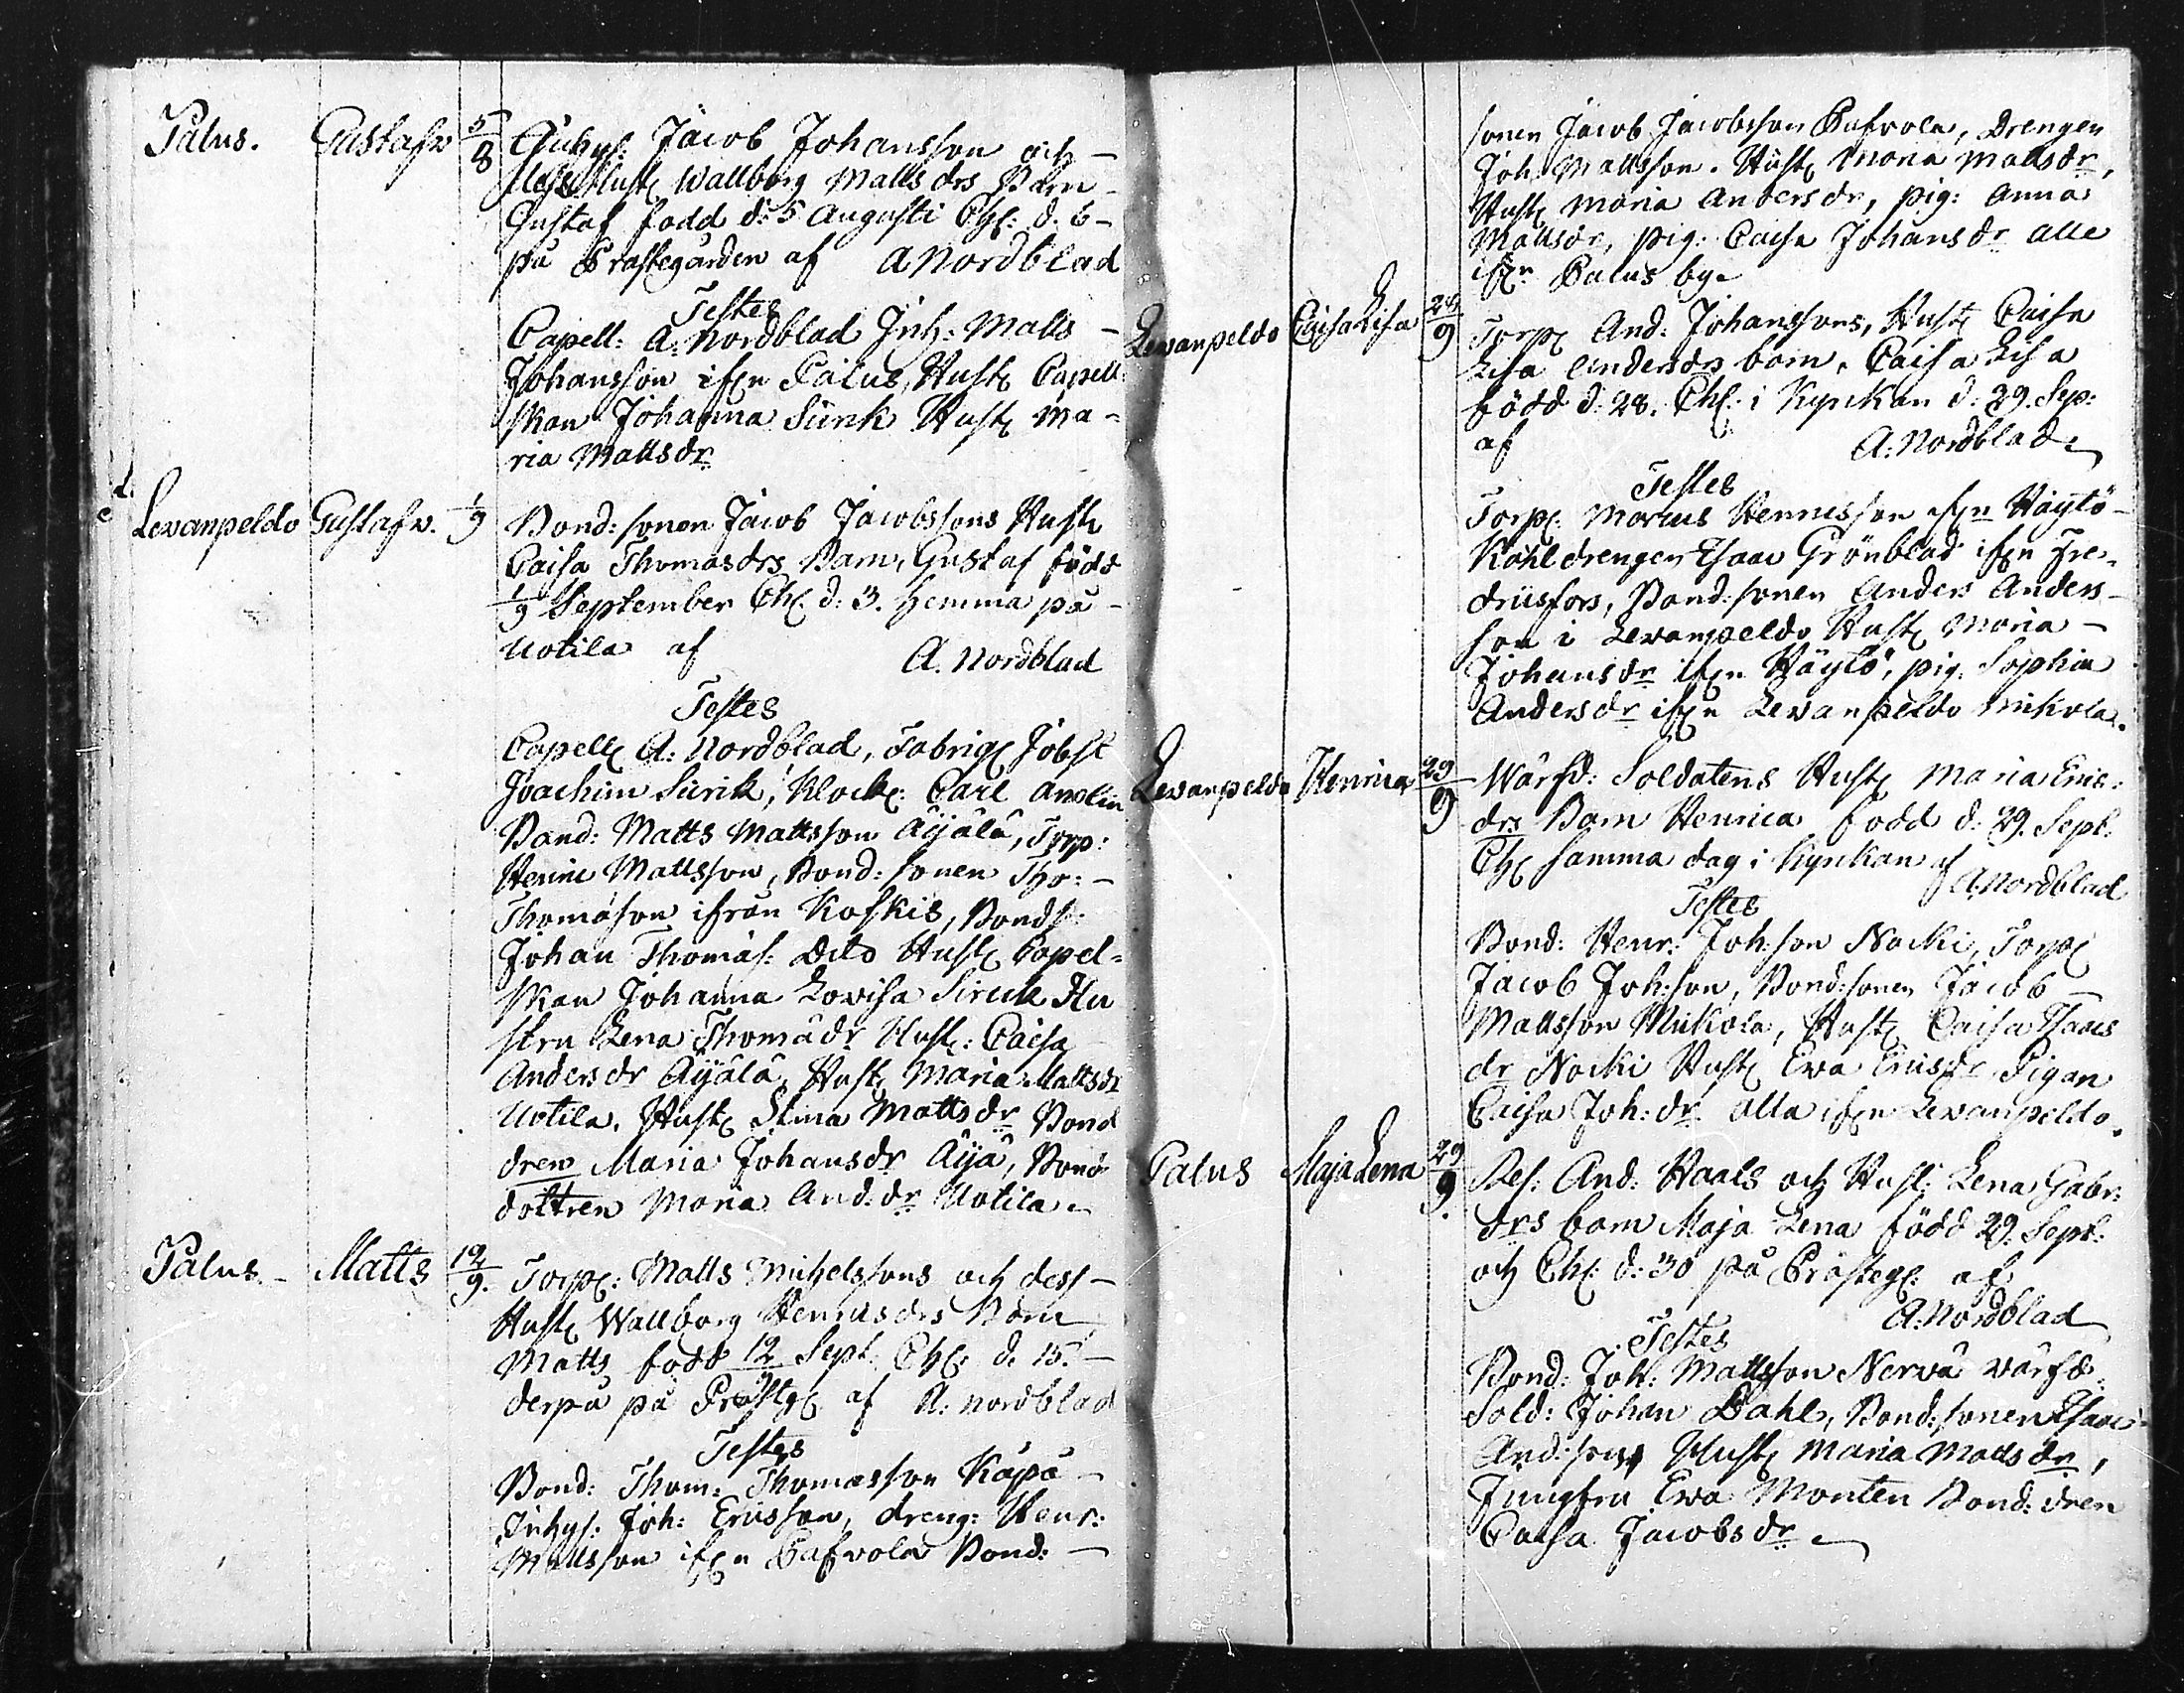 Palus. Gustafv 5/8 Inhys: Jacob Johansson och
dess Hust. Wallborg Matts drs Barn
Gustaf född d: 5 Augusti Chr: d. 6
på Prästegården af A Nordblad
Testes
Capell: A: Nordblad Inh: Matts
Johansson ifrn Palus, Hust Capell
skan Johanna Sünk Hust Ma-
ria Matts dr
Levanpeldo Gustafv. 1/9 Bond: sonen Jacob Jacobssons Hust
Caisa Thomasdrs Barn, Gustaf född
1/9 September Chr. d: 3. hemma på
Uotila af A. Nordblad
Testes
Capell A: Nordblad, Fabriq Jobst
Joachim Sürik, Klock: Carl
Bond: Matts Mattsson Äijälä, Torp:
Henric Mattsson, Bond: sonen Tho:
Thomason ifrån Koskis, Bonds:
Johan Thomas: Dito Hust Capel-
skan Johanna Lovisa Siruk Hu
strn Lena Thomadr Hust: Caisa
Anders dr Äijälä, Hust Maria Matts dr
Uotila, Hust Stina Matts dr Bond
dren Maria Johans dr Äijä, Bond
dottren Maria And: dr Uotila
Palus. Matts 12/9. Torp: Matts Michelssons och dess
Hust Wallborg Henricsdrs Barn
Matts född 12 Sept. Chr: d. 15.
derpå på Prästg af A: Nordblad
Testes
Bond: Thom: Thomasson Käpä
Inhys: Joh: Ericsson, dreng: Henr:
Mattsson ifrn Pafvola Bond:
sonen Jacob Jacobsson Pafvola, Drengen
Joh: Mattsson. Hust Maria Matts dr,
Hust Maria Anders dr, pig: Anna
Mattsdr, pig: Caisa Johans dr alle
ifrn Palus by
Levanpeldo Caisa Lisa 28/9 Torp And: Johanssons, Hust Caisa
Lisa Andersdrs barn, Caisa Lisa
född d: 28. Chr: i Kyrckan d: 29. Sep:
af A: Nordblad
Testes
Torp: Marcus Henricsson ifrn Häytö
Kohldrengen Esaac Grönblad ifrn Fre-
dricsfors, Bond: sonen Anders Anders
son i Levanpeldo Hust Maria
Johans dr ifrn Häytö, pig. Sophia
Anders dr ifrn Levanpeldo Mikola.
Levanpeldo Henrica 29/9 Wärfd: Soldatens Hust Maria Eric-
drs Barn Henrica född d. 29. Sept.
Chr samma dag i Kyrckan af
A. Nordblad
Testes
Bond: Henr: Joh:son Nocki, Torp
Jacob Joh:son, Bond:sonen Jacob
Mattsson Mickola, Hust Caisa Isaacs
dr Nocki Hust Ewa Erics dr Pigan
Caisa Joh: dr alla ifrn Levanpeldo.
Palus Maja Lena 29/9. Res: And: Haals och Hust: Lena Gabr:
drs barn Maja Lena född 29. Sept:
och Chr: d: 30 på Prästeg: af
A: Nordblad
Testes
Bond: Joh: Mattsson Nervä värfd:
Sold: Johan Dahl, Bond: sonen Esaac
And:sons Hust Maria Matts dr,
Jungfru Ewa Monten Bond: dren
Caisa Jacobs dr